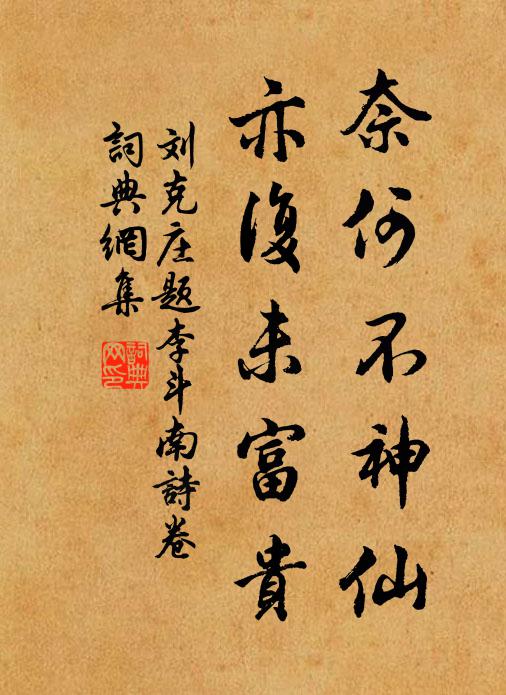 奈何不神仙
亦復未富貴
刘克庄题李斗南詩卷
詞典網集
詞典網印